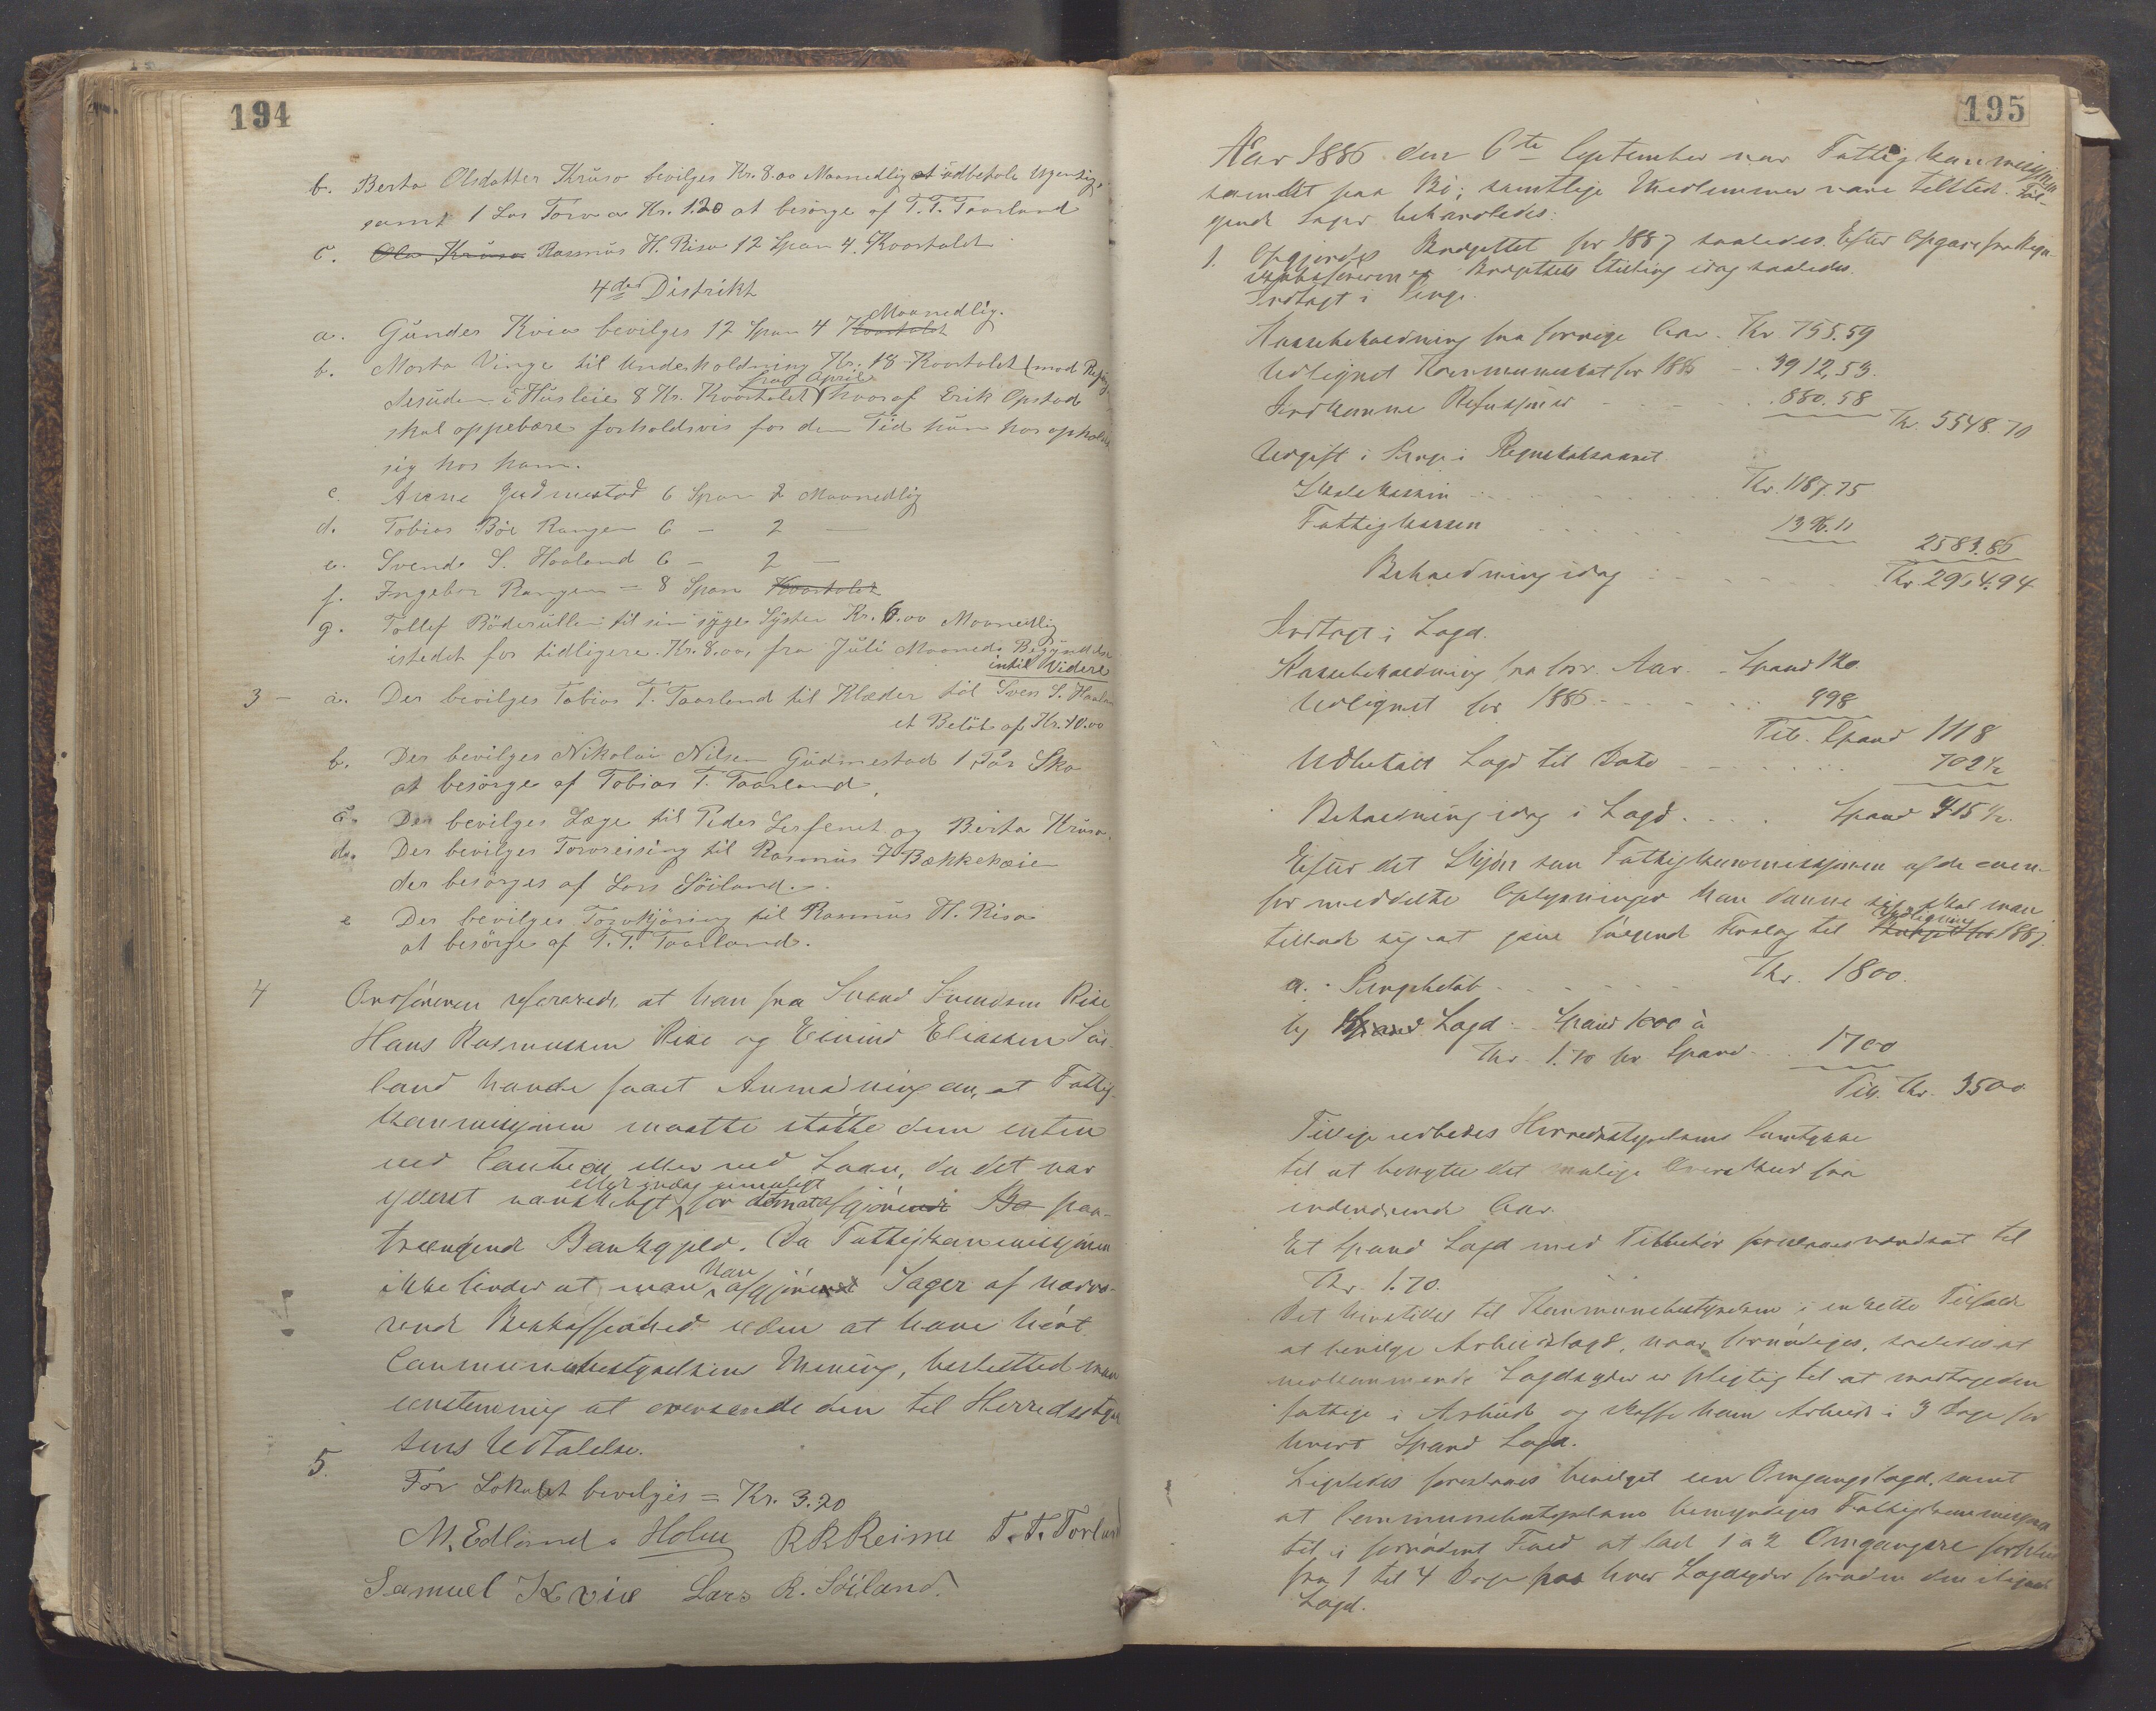 194
b. Berta Olsdatter Krüso bevilges Kr. 8.00 Maanedlig at üdbetale Ugentlig,
samt 1 Las Torv a Kr. 1.20 at besörge af T. T. Taarland
c. Ola Krüso Rasmüs H. Risa 12 Span 4. Kvartalet
4de Distrikt
Maanedlig.
a. Gunder Kvia bevilges 12 Span 4 Kvartalet
b. Marta Vinge til Underholdning Kr. 18 Kvartalet (mod
fra April
desüden i Hüsleie 8 Kr. Kvartalet hvoraf Erik Opstad
skal oppebære forholdsvis for den Tid hün har opholdt
sig hos ham.
c. Arne Gudmestad 6 Span 2 Maanedlig
d. Tobias Böe Rangen 6 — 2 —
e. Svend S. Haaland 6 — 2 —
f. Ingebor Rangen = 8 Span Kvartalet
g. Tollef Böderüllen til sin syge Syster Kr. 6.00 Maanedlig
istedet for tidligere Kr. 8.00, fra Juli Maaneds Begyndelse
intil Videre
3 — a. Der bevilges Tobias T. Taarland til Klæder til Sven S. Haaland
et Belöb af Kr. 10.00
b. Der bevilges Nikolai Nilsen Güdmestad 1 Par Sko
at besörge af Tobias T. Taarland,
c. Der bevilges Læge til Peder og Berta Krüso.
d. Der bevilges Torvreising til Rasmüs T Bækkehæien
der besörges af Lars Söiland.
e Der bevilges Torvkjöring til Rasmüs H. Risa
at besörge af T. T. Taarland.
4 Ordföreren refererede at han fra Svend Svendsen Risa
Hans Rasmussen Risa og Eivind Eliassen Söi-
land havde faaet Anmodning om, at Fattig-
kommisjonen maatte stötte dem enten
ved Caution eller ved Laan, da det var
eller endog umuligt
yderst vanskeligt for dem at afgjöre Ba paa-
trængende Bankgjeld. Da Fattigkommissjonen
kan
ikke finder at man afgjörende Sager af nærvæ-
rende Beskaffenhed uden at have hört
Communebestyrelsens Mening, beslutted man
enstemmig at oversende den til Herredssty-
sens Udtalelse.
5. For Lokalet bevilges = Kr. 3.20
M. Edland. Holm RRReime T. T. Torland
Samuel Kvie Lars R. Söiland.
195
Aar 1886 den 6te September var Fattigkommissjonen
samlet paa Bö; samtlige Medlemmer vare tilsted. Föl-
gende Sager behandledes:
1. Opgjordes Budgettet for 1887 saaledes. Efter Opgave fra Regn-
skabsföreren er Budgettets Stilling idag saaledes.
Indtægt i Penge.
Kassebeholdning fra forrige Aar. Kr 755.59
Udlignet Kommuneskat for 1886 — . 3912,53.
Indkomne Refusjoner - - - . 880.58
Kr. 5548.70
Udgift i Penge i Regnskabsaaret
Skolekassen - - - Kr. 1187.75
Fattigkassen - - - 1396.11
2583.86
Beholdning idag - - - Kr. 2964.94
Indtægt i Lægd.
Kassebeholdning fra forr. Aar. - Spand 120
Udlignet for 1886 - - - 998
Til. Spand 1118
Udbetalt Lægd til Dato - - - 702½
Beholdning idag i Lægd . . . . Spand 415½.
Efter det Skjön som Fattigkommissjonen af de oven-
for meddelte Oplysninger kan danne sig skal man
Udligning
tillade sig at give fölgende Forslag til Budgett for 1887.
a. - Pengebelöb - - - Kr. 1800.
b, Spand Lægd - Spand 1000 à
Kr. 1.70 pr Spand - - 1700
Till. Kr. 3500
Tillige udbedes Herredsstyrelsens Samtykke
til at benytte det mulige Overskud fra
indeværende Aar.
Et Spand Lægd med Tilbehör prelimes værdsat til
Kr. 1.70.
Det henstilles til Kommunebestyrelsen i enkelte Tilfælde
at bevilge Arbeidslægd, naar fornödiges, saaledes at
vedkommende Lægdsyder er pligtig til at modtage den
fattige i Arbeide og skaffe ham Arbeide i 3 Dage for
hvert Spand Lægd.
Ligeledes foreslaaes bevilget een Omgangslægd, samt
at Communebestyrelsen bemyndiges Fattigkommissjonen
til i fornödent Fald at lade 1 a 2 Omgangere forpleie
fra 1 til 4 Dage paa hver Lægdsyder foruden den
Lægd.